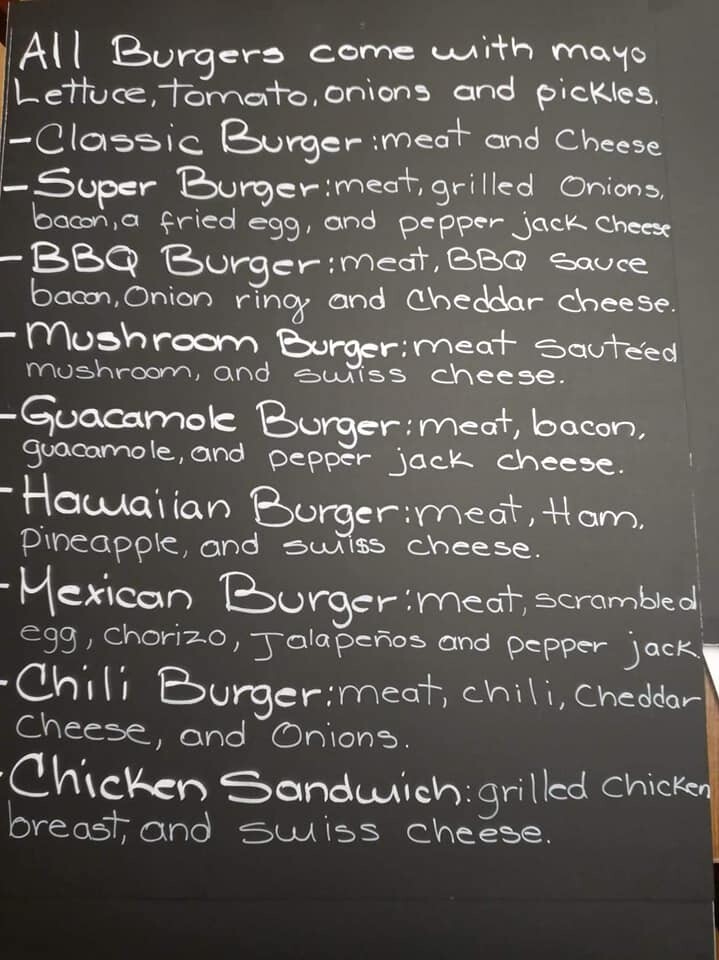 All Burgers come with mayo
Lettuce, Tomato, onions and pickles.
- Classic Burger: meat and Cheese
- Super Burger: meat, grilled Onions,
bacon, a fried egg, and pepper jack Cheese
- BBQ Burger: meat, BBQ Sauce
bacon, Onion ring and Cheddar cheese.
- Mushroom Burger: meat Sauteéd
mushroom, and swiss cheese.
- Guacamole Burger: meat, bacon,
guacamole, and pepper jack cheese.
- Hawaiian Burger: meat, Ham,
pineapple, and swiss cheese.
- Mexican Burger: meat, scrambled
egg, chorizo, Jalapeños and pepper jack.
- Chili Burger: meat, chili, Cheddar
Cheese, and Onions.
- Chicken Sandwich: grilled Chicken
breast, and swiss cheese.